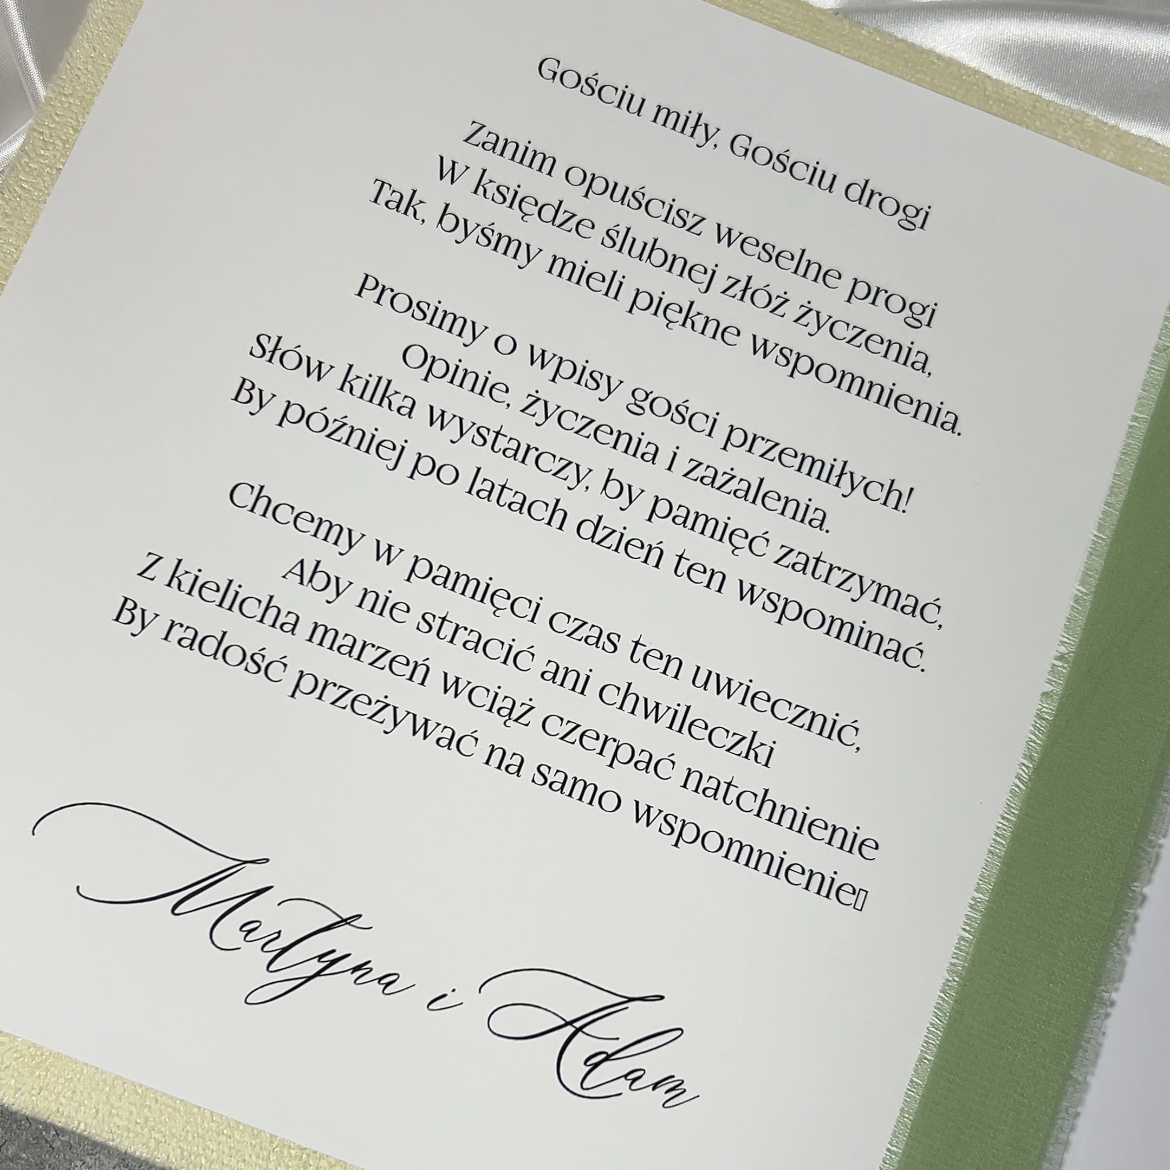 Gościu miły, Gościu drogi
Zanim opuścisz weselne progi
W księdze ślubnej złóż życzenia,
Tak, byśmy mieli piękne wspomnienia.
Prosimy o wpisy gości przemiłych!
Opinie, życzenia i zażalenia.
Słów kilka wystarczy, by pamięć zatrzymać,
By później po latach dzień ten wspominać.
Chcemy w pamięci czas ten uwiecznić,
Aby nie stracić ani chwileczki
Z kielicha marzeń wciąż czerpać natchnienie
By radość przeżywać na samo wspomnienie▯
Martyna i Adam